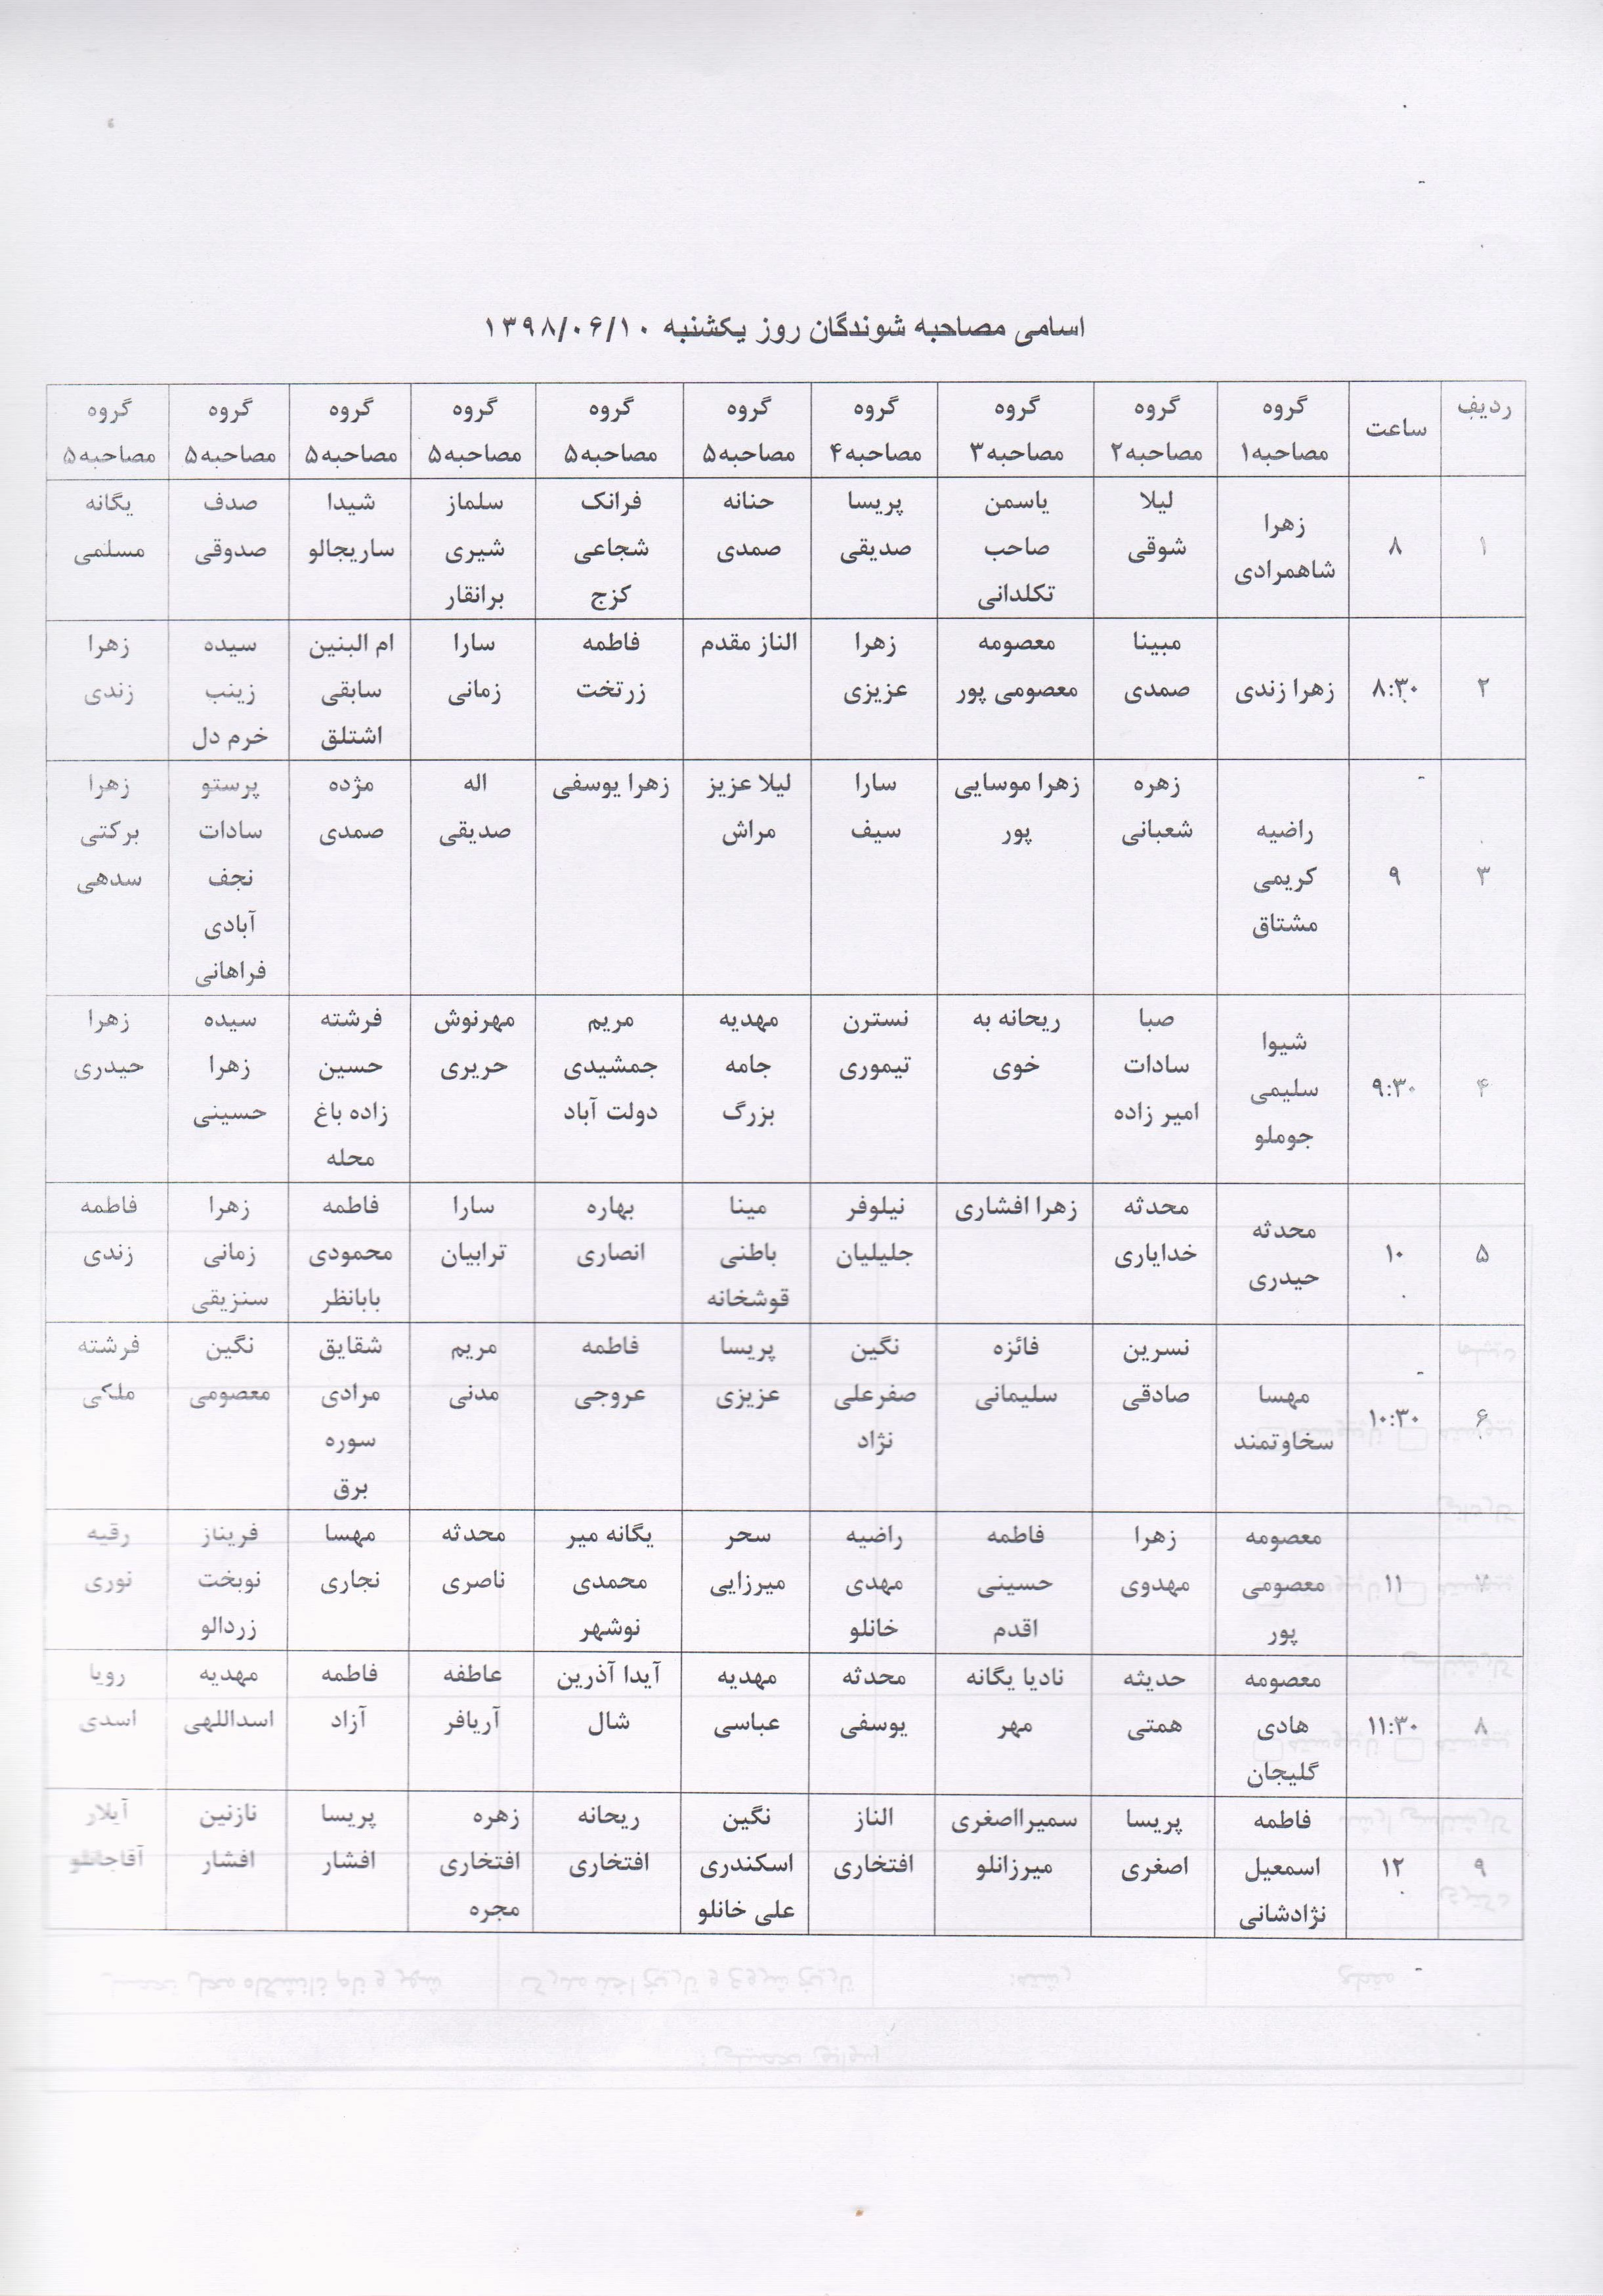 اسامی مصاحبه شوندگان روز یکشنبه ۱۳۹۸/۰۶/۱۰
ردیف ساعت گروه مصاحبه۱ گروه مصاحبه۲ گروه مصاحبه۳ گروه مصاحبه۴ گروه مصاحبه۵ گروه مصاحبه۵ گروه مصاحبه۵ گروه مصاحبه۵ گروه مصاحبه۵ گروه مصاحبه۵
۱ ۸ زهرا شاهمرادی لیلا شوقی یاسمن صاحب تکلدانی پریسا صدیقی حنانه صمدی فرانک شجاعی کزج سلماز شیری برانقار شیدا ساریجالو صدف صدوقی یگانه مسلمی
۲ ۸:۳۰ زهرا زندی مبینا صمدی معصومه معصومی پور زهرا عزیزی الناز مقدم فاطمه زرتخت سارا زمانی ام البنین سابقی اشتلق سیده زینب خرم دل زهرا زندی
۳ ۹ راضیه کریمی مشتاق زهره شعبانی زهرا موسایی پور سارا سیف لیلا عزیز مراش زهرا یوسفی اله صدیقی مژده صمدی پرستو سادات نجف آبادی فراهانی زهرا برکتی سدهی
۴ ۹:۳۰ شیوا سلیمی جوملو صبا سادات امیر زاده ریحانه به خوی نسترن تیموری مهدیه جامه بزرگ مریم جمشیدی دولت آباد مهرنوش حریری فرشته حسین زاده باغ محله سیده زهرا حسینی زهرا حیدری
۵ ۱۰ محدثه حیدری محدثه خدایاری زهرا افشاری نیلوفر جلیلیان مینا باطنی قوشخانه بهاره انصاری سارا ترابیان فاطمه محمودی بابانظر زهرا زمانی سنزیقی فاطمه زندی
۶ ۱۰:۳۰ مهسا سخاوتمند نسرین صادقی فائزه سلیمانی نگین صفرعلی نژاد پریسا عزیزی فاطمه عروجی مریم مدنی شقایق مرادی سوره برق نگین معصومی فرشته ملکی
۷ ۱۱ معصومه معصومی پور زهرا مهدوی فاطمه حسینی اقدم راضیه مهدی خانلو سحر میرزایی یگانه میر محمدی نوشهر محدثه ناصری مهسا نجاری فریناز نوبخت زردالو رقیه نوری
۸ ۱۱:۳۰ معصومه هادی گلیجان حدیثه همتی نادیا یگانه مهر محدثه یوسفی مهدیه عباسی آیدا آذرین شال عاطفه آریافر فاطمه آزاد مهدیه اسداللهی رویا اسدی
۹ ۱۲ فاطمه اسمعیل نژادشانی پریسا اصغری سمیرااصغری میرزانلو الناز افتخاری نگین اسکندری علی خانلو ریحانه افتخاری زهره افتخاری مجره پریسا افشار نازنین افشار آیلار آقاجانلو